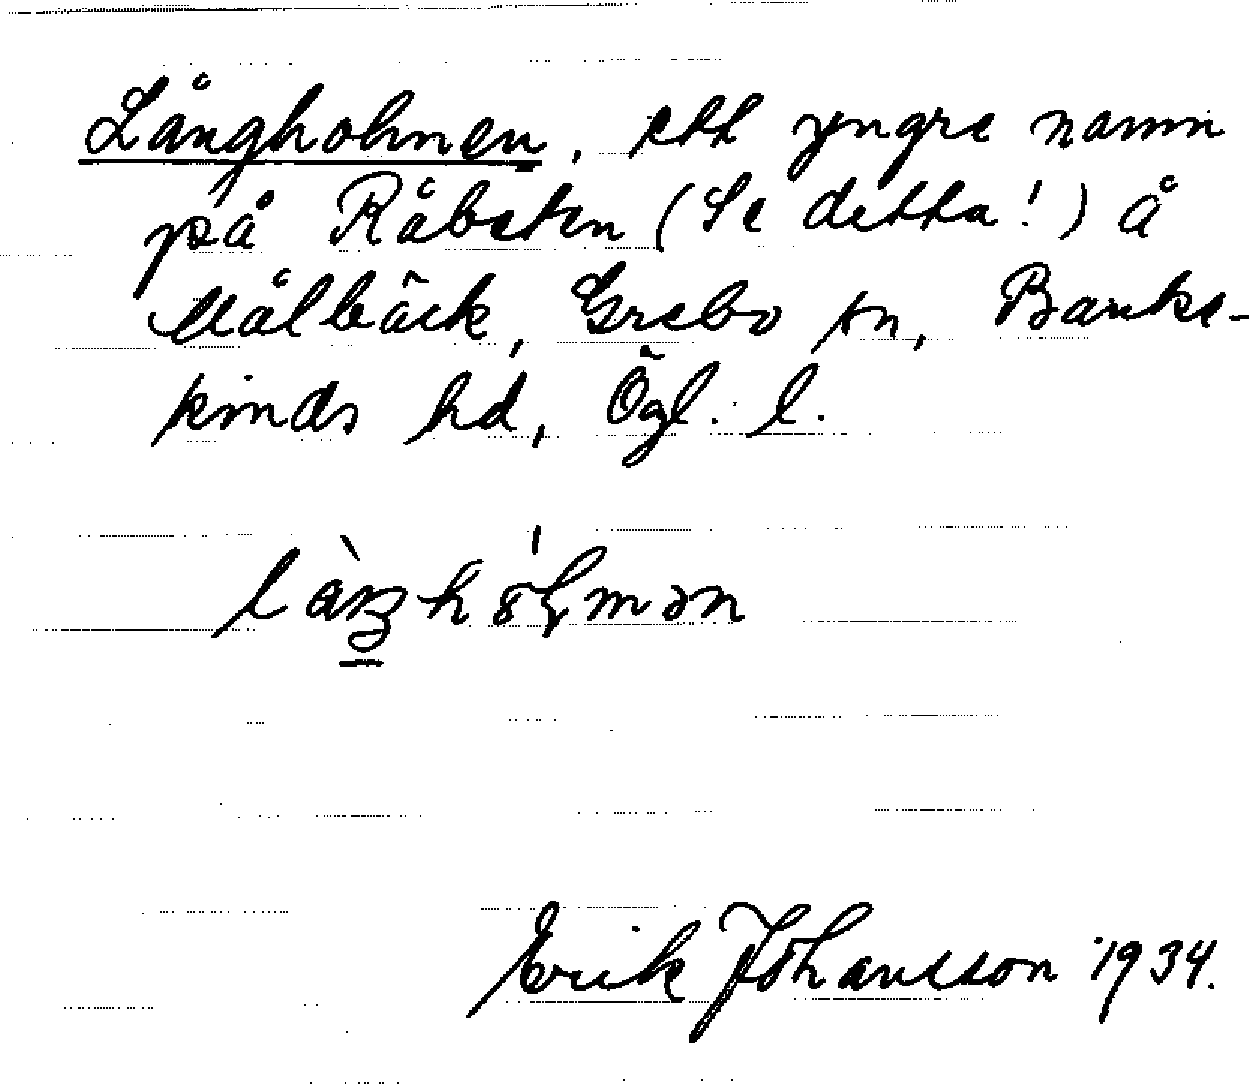 Långholmen, ett yngre namn
på Råbsten (Se detta!) å
Målbäck, Grebo sn, Banke-
kinds hd, Ögl. l.
Erik Johansson 1934.